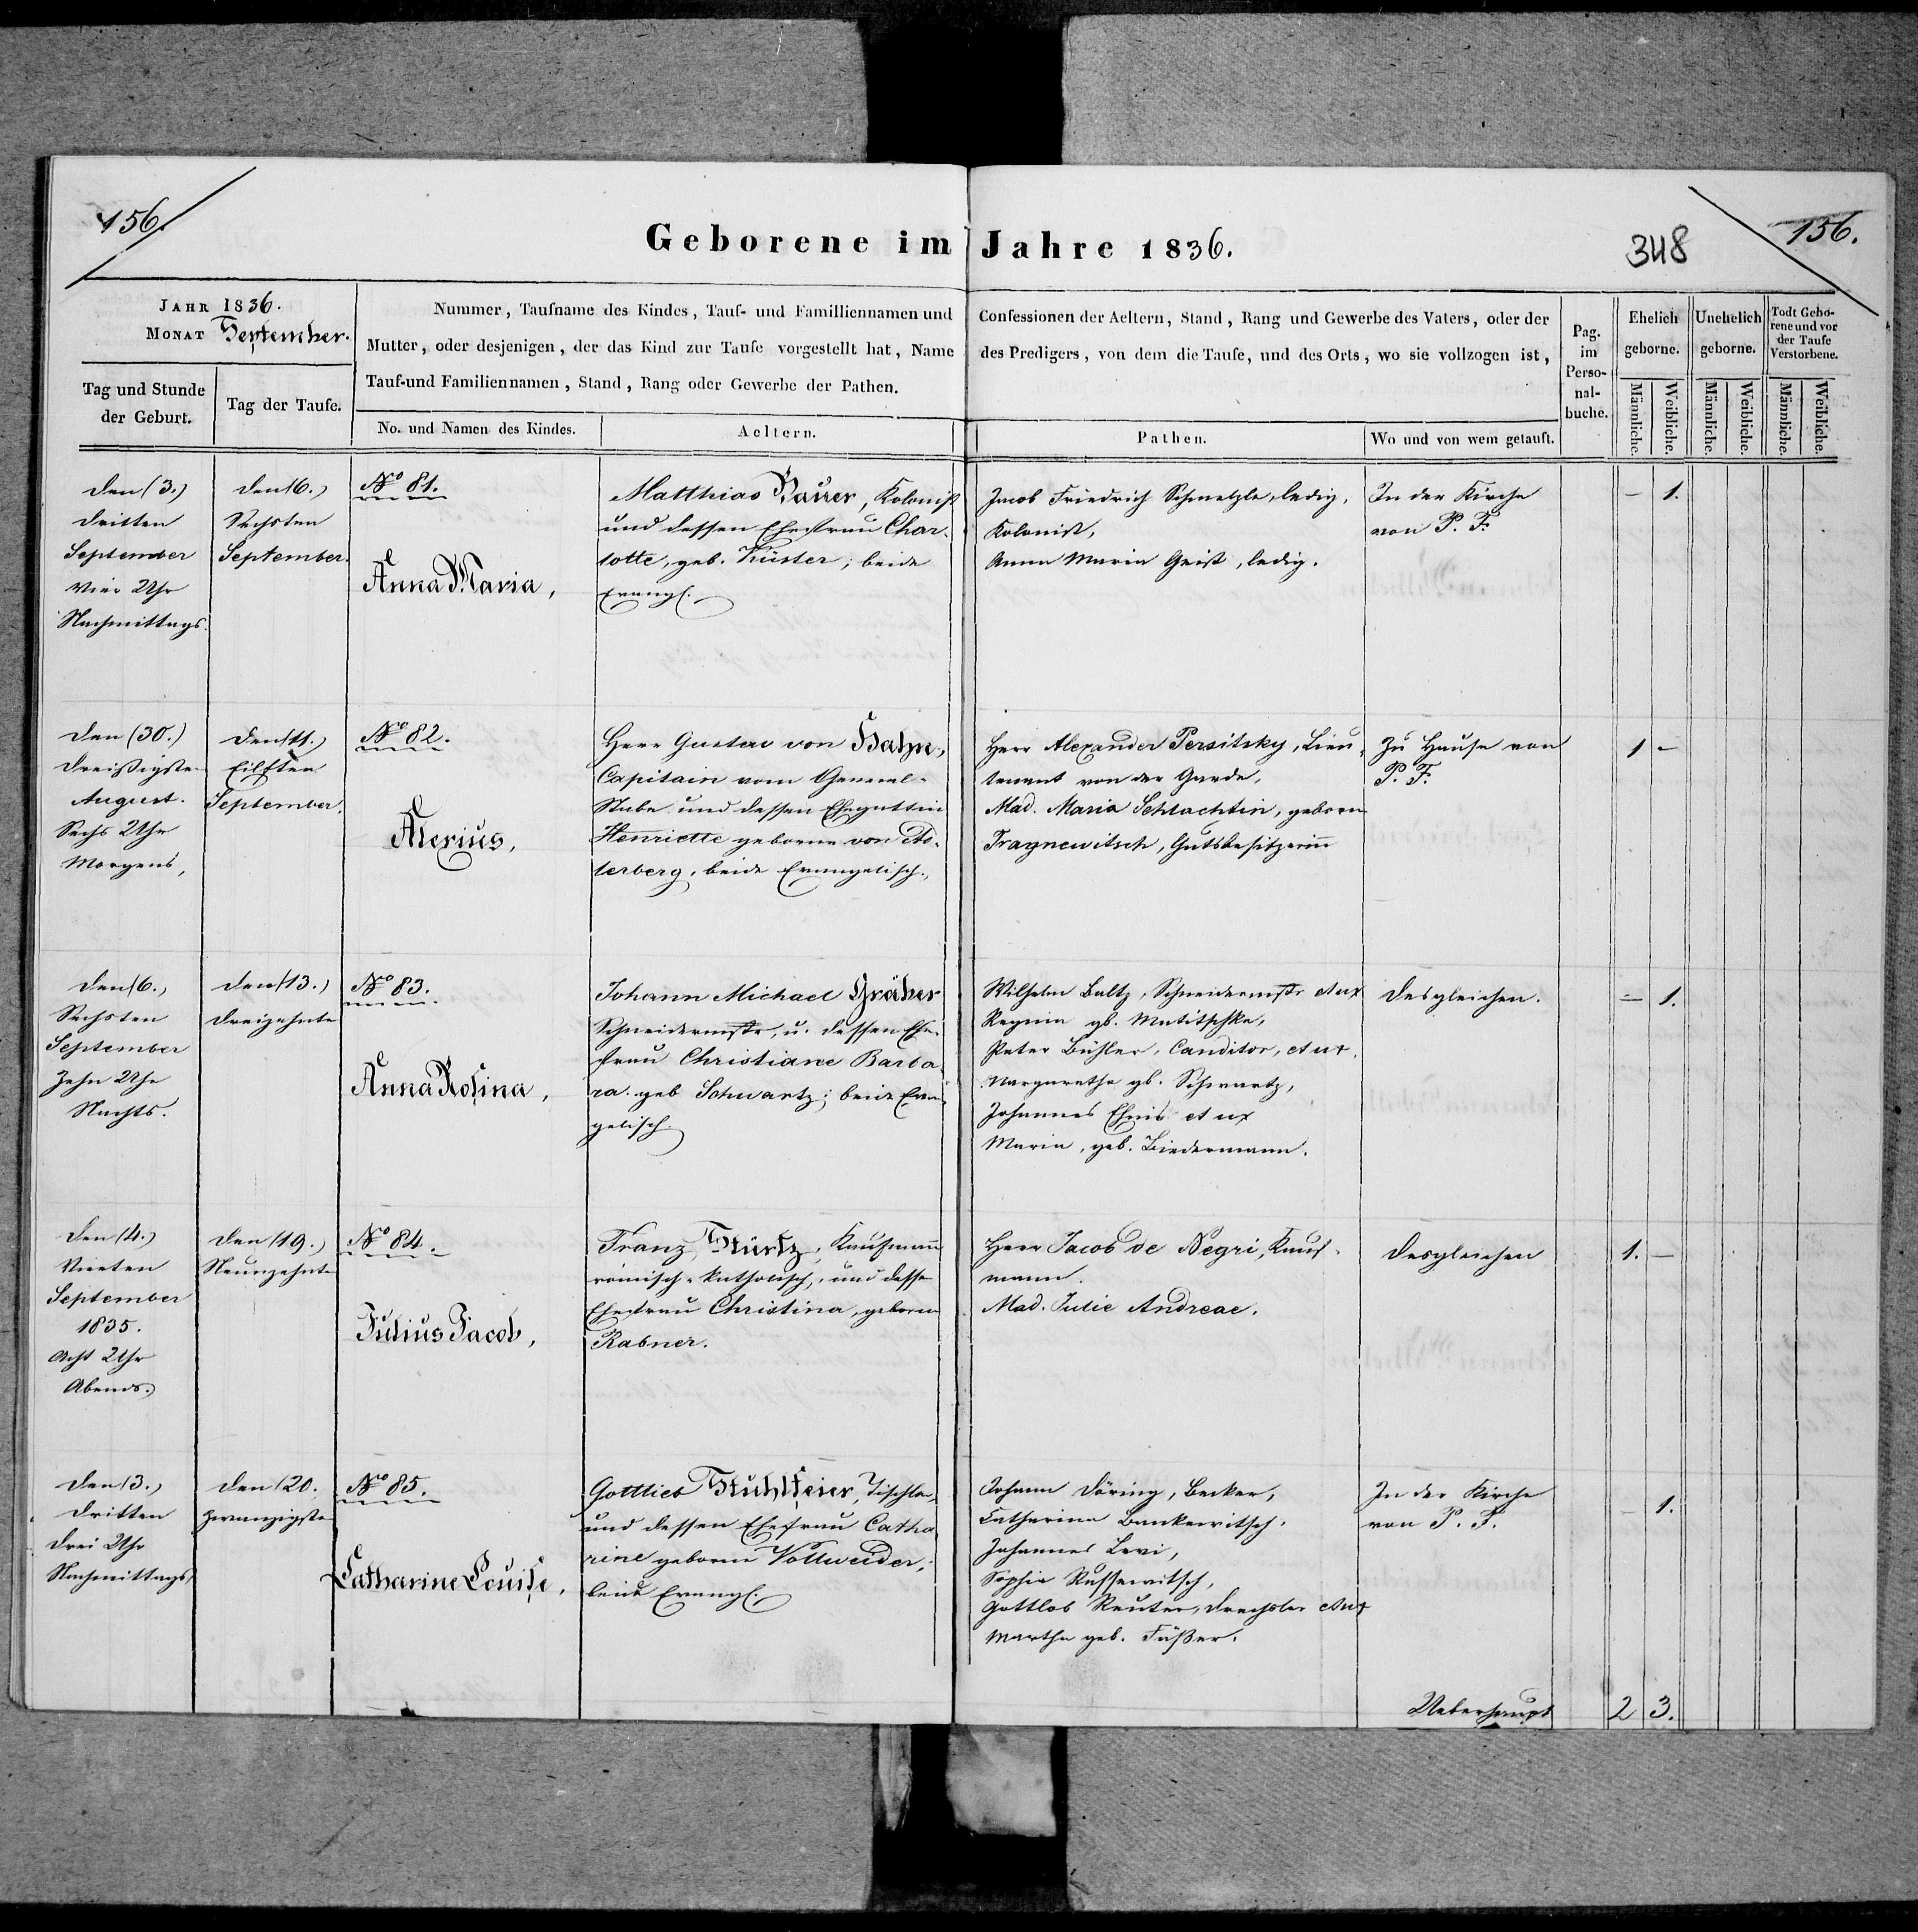 156.
Geborene im Jahre 1836.
348
156.
JAHR 1836.
MONAT September.
Tag und Stunde
der Geburt.
Tag der Taufe.
Nummer, Taufname des Kindes, Tauf- und Familliennamen und
Mutter, oder desjenigen, der das Kind zur Taufe vorgestellt hat, Name
Tauf-und Familiennamen, Stand, Rang oder Gewerbe der Pathen.
No. und Namen des Kindes.
Aeltern.
Confessionen der Aeltern, Stand, Rang und Gewerbe des Vaters, oder der
des Predigers, von dem die Taufe, und des Orts, wo sie vollzogen ist,
Pathen.
Wo und von wem getauft.
Pag.
im
Perso-
nal-
buche.
Ehelich
geborne.
Unehelich
geborne.
Todt Gebo-
rene und vor
der Taufe
Verstorbene.
Männliche.
Weibliche.
Männliche.
Weibliche.
Männliche.
Weibliche.
den (3.)
dritten
September
vier Uhr
Nachmittags.
den (6.)
Sechsten
September.
No 81.
Anna Maria,
Matthias Bauer, Kolonist
und dessen Ehefrau Char-
lotte, geb. Küster; beide
Evangl.
Jacob Friedrich Schmelzle, ledig,
Kolonist,
Anna Maria Geist, ledig.
In der Kirche
von P. F.
- 1.
den (30.)
dreißigsten
August.
Sechs Uhr
Morgens,
den (11.)
Eilften
September.
No 82.
Alexius,
Herr Gustav von Hahn,
Capitain vom General-
Stabe und dessen Ehegattin
Henriette geborne von
terberg, beide Evangelisch.
Herr Alexander Persitsky, Lieu-
tenant von der Garde,
Mad. Maria Schlachtin, geborne
Fragnewitsch, Gutsbesitzerinn
Zu Hause von
P. F.
1 -
den (6.)
Sechsten
September
Zehn Uhr
Nachts.
den (13.)
dreizehnte
No 83.
Anna Rosina,
Johann Michael Gräber
Schneidermstr, u. dessen Ehe-
frau Christiane Barba-
ra geb Schwartz; beide Evan-
gelisch.
Wilhelm Baltz, Schneidermstr et ux
Regina gb. Matitschke,
Peter Bühler, Canditor, et ux.
Margarethe gb. Schwartz,
Johannes Ehnis et ux
Maria, geb. Biedermann.
desgleichen.
- 1.
den (4.)
Vierten
September
1835.
Acht Uhr
Abends.
den (19.)
Neunzehnte
No 84.
Julius Jacob,
Franz Stürtz, Kaufmann
römisch-katholisch, und dessen
Ehefrau Christina, geborne
Rabner.
Herr Jacob de Negri, Kauf-
mann.
Mad. Julie Andreae.
desgleichen
1. -
den (3.)
dritten
drei Uhr
Nachmittags,
den (20.
Zwanzigste
No 85.
Catharine Louise,
Gottlieb Stuhlfeier, Tischler,
und dessen Ehefrau Catha
rine geborne Vollweider;
beide Evangl.
Johann Döring, Becker,
Catharina Bankewitsch,
Johannes Levi,
Sophia Russewitsch,
Gottlob Reuter, Drechsler et ux
Martha geb. Füßer.
In der Kirche
von P. F.
- 1.
Ueberhaupt
2 3.